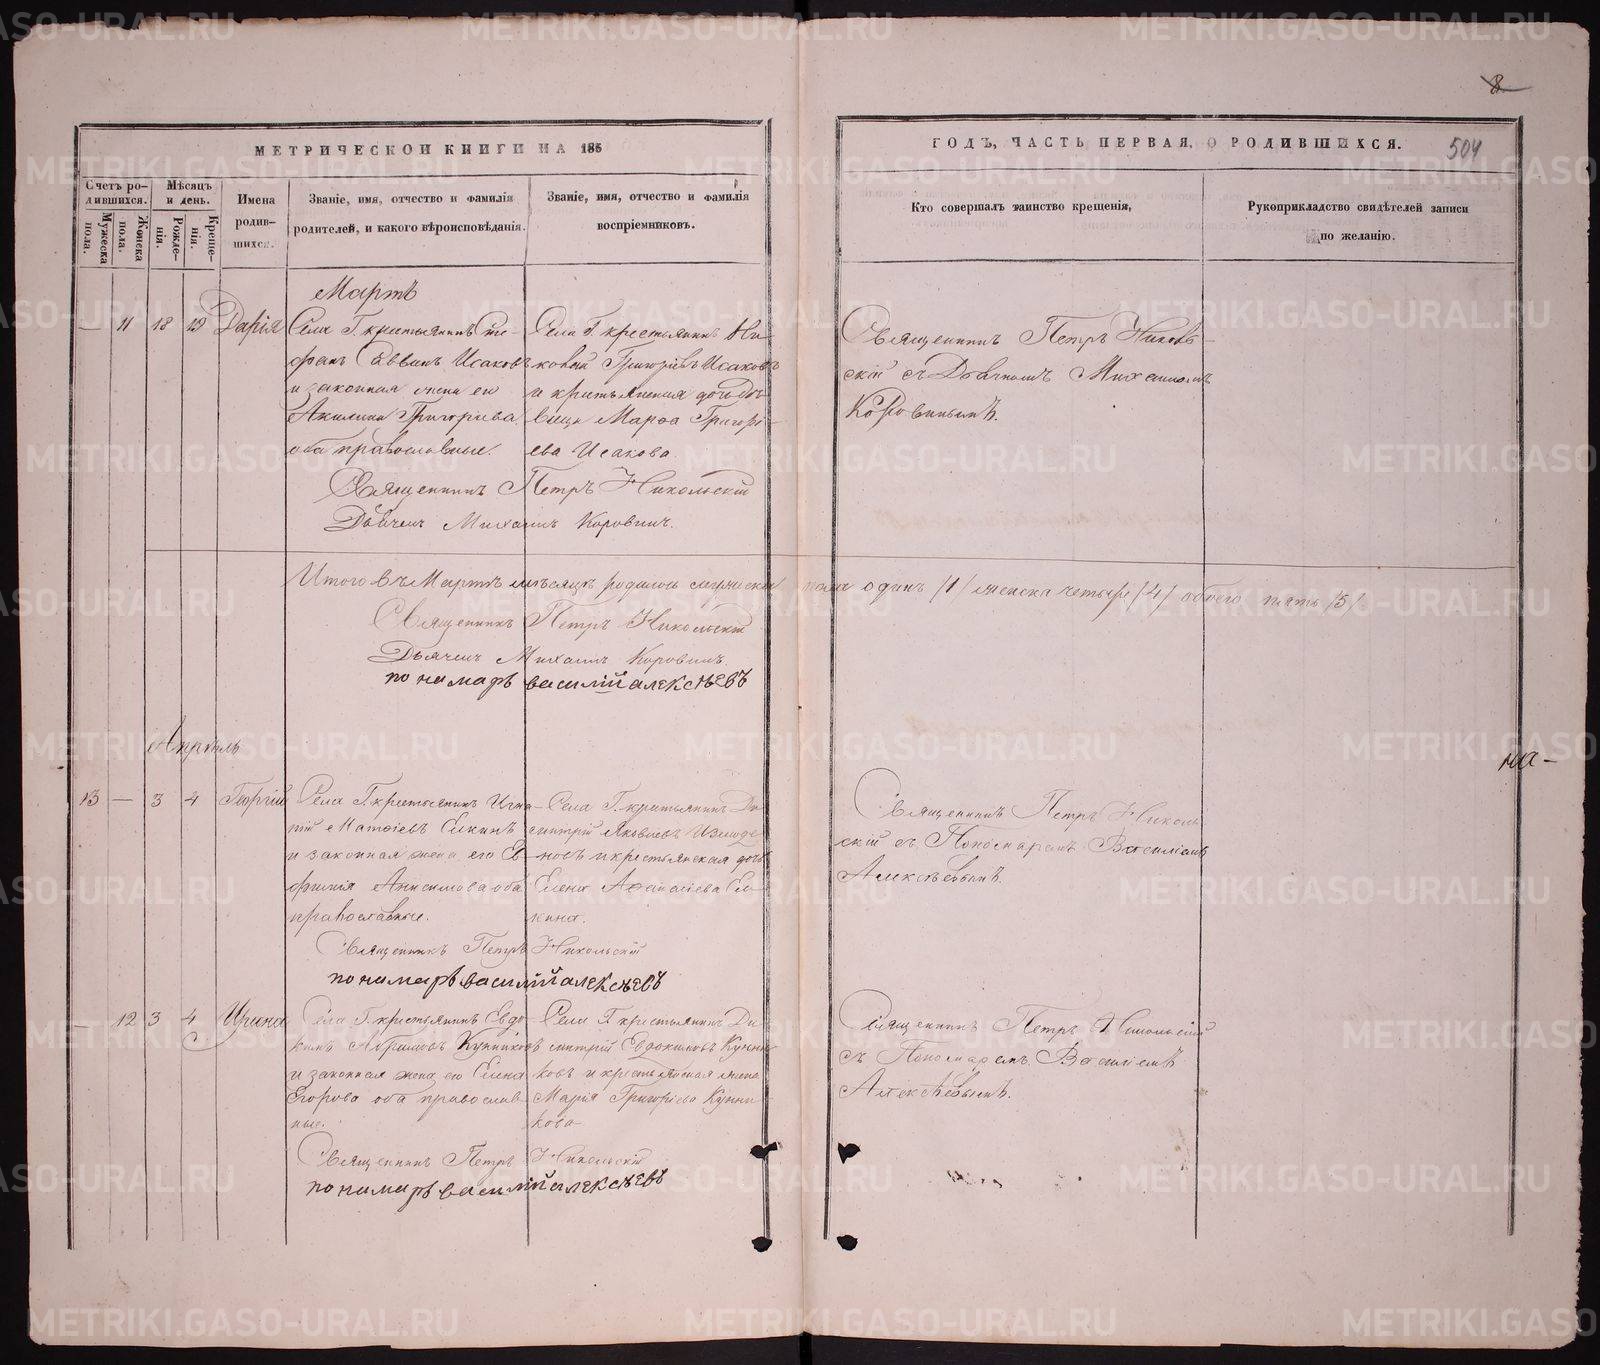 8
МЕТРИЧЕСКОЙ КНИГИ НА 185
ГОДЪ, ЧАСТЬ ПЕРВАЯ, О РОДИВШИХСЯ.
504
Счетъ ро-
дившихся.
Мужеска
пола.
Женска
пола.
Мѣсяцъ
и день.
Рожде-
нія.
Креще-
нія.
Имена
родив-
шихся.
Званіе, имя, отчество и фамилія
родителей, и какого вѣроисповѣданія.
Званіе, имя, отчество и фамилія
воспріемниковъ.
Кто совершалъ таинство крещенія,
Рукоприкладство свидѣтелей записи
по желанію.
Мартъ
— 11 18 19 Дарія
Села Г. крестьянинъ Сте-
фанъ Саввинъ Исаковъ
и законная жена его
Акилина Григорьева
оба православные.
Села Г. крестьянинъ Ни-
коный Григорьевъ Исаковъ
и крестьянская дочь дѣ-
вица Марѳа Григорь-
ева Исакова
Священникъ Петръ Николь-
скій съ Дьячкомъ Михаиломъ
Коровинымъ.
Священникъ Петръ Никольскій
Дьячекъ Михаилъ Коровинъ.
Итого въ Мартѣ мѣсяцѣ родилось мужеска пола одинъ /1/ женска четыре /4/ обоего пять /5/
Священникъ Петръ Никольскій
Дьячекъ Михаилъ Коровинъ
пономарь василій алексѣевъ
Апрѣль
на-
13 — 3 4 Георгій
Села Г. крестьянинъ Игна-
тій Матѳіевъ Елкинъ
и законная жена его Ев-
фимія Анисимова оба
православные.
Села Г. крестьянинъ Ди-
митрій Яковлевъ Измоде-
новъ и крестьянская дочь
Елена Аѳанасіева Ел-
кина.
Священникъ Петръ Николь-
скій съ Пономаремъ Василіемъ
Алексѣевымъ.
Священникъ Петръ Никольскій
пономарь василій алексѣевъ
— 12 3 4 Ирина
Села Г. крестьянинъ Евдо-
кимъ Абрамовъ Кунниковъ
и законная жена его Елена
Егорова оба православ-
ные.
Села Г. крестьянинъ Ди-
митрій Евдокимовъ Кунни-
ковъ и крестьянская жена
Марія Григоріева Кунни-
кова
Священникъ Петръ Никольскій
съ Пономаремъ Василіемъ
Алексѣевымъ.
Священникъ Петръ Никольскій
пономарь василій алексѣевъ
METRIKI.GASO-URAL.RU